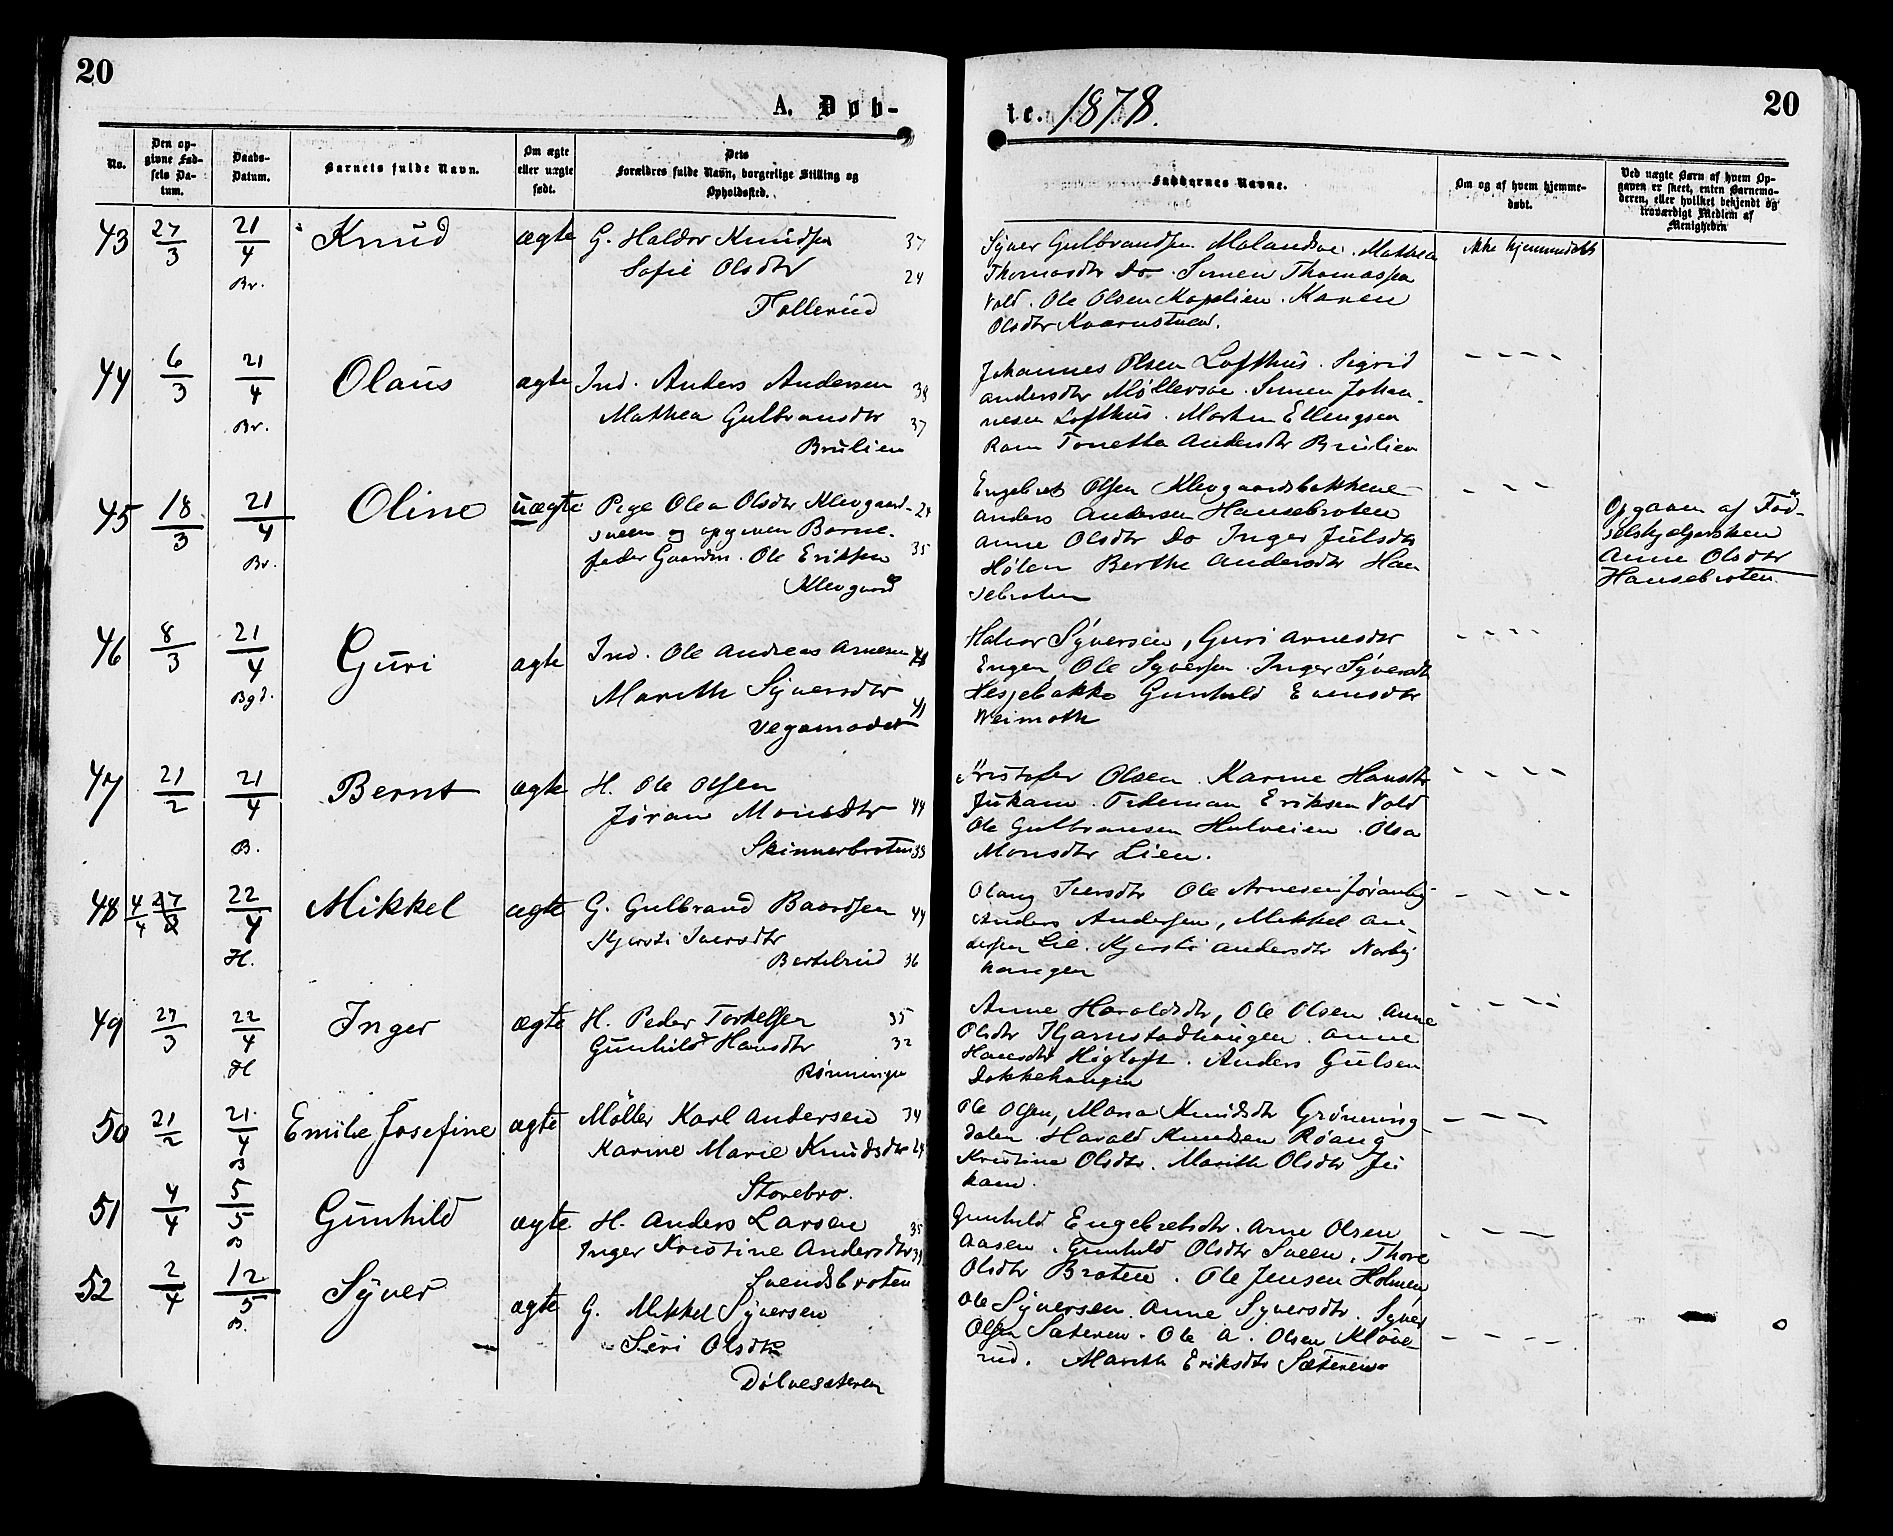 20
A. Døb-
No.
Den op-
givne Fød-
sels Da-
tum.
Daabs-
Datum.
Barnets fulde Navn.
Om ægte
eller uægte
født.
Dets
Forældres fulde Navn, borgerlige Stilling og
Opholdssted.
43 27/3 21/4 Br. Knud ægte
G. Haldor Knudsen 37
Sofie Olsdtr 24
Tollerud
44 6/3 21/4 Br. Olaus ægte
Ind. Anders Andersen 38
Mathea Gulbransdtr 37
Brulien
45 18/3 21/4 Br. Oline uægte
Pige Olea Olsdtr Klevgaard- 24
sveen og opgiven Barne-
fader Gaardm. Ole Eriksen 35
Klevgaard
46 8/3 21/4 Bgd. Guri ægte
Ind. Ole Andreas Arnesen
Marith Syversdtr 41
Vegamodet
47 21/2 21/4 B. Bernt ægte
H. Ole Olsen
Jøran Monsdtr 44
Skinnerbroten 33
48 4/4 27/3 22/4 H. Mikkel ægte
G. Gulbrand Baardsen 44
Kjersti Iversdtr
Bertelrud 36
49 27/3 22/4 H Inger ægte
H. Peder Torkelsen 35
Gunhild Hansdtr 32
Rønningen
50 21/2 21/4 B Emilie Josefine ægte
Møller Karl Andersen 34
Karine Marie Knudsdtr 24
Storebro.
51 4/4 5/5 B Gunhild ægte
H. Anders Larsen 35
Inger Kristine Andersdtr
Svendsbroten
52 2/4 12/5 B. Syver ægte
G. Mikkel Syversen
Siri Olsdtr
Dølvesæteren
te. 1878.
20
Faddernes Navne.
Om og af hvem hjemme-
døbt.
Ved uægte Børn af hvem Op-
gaven er skeet, enten Barnemo-
deren, eller hvilket bekjendt og
troværdigt Medlem af
Menigheden
Syver Gulbrandsen Molandsøe. Mathea ikke hjemmedøbt
Thomasdtr Do. Simen Thomassen
Vold. Ole Olsen Kopslien. Karen
Olsdtr Kværnstuen.
Johannes Olsen Lofthus. Sigrid - - - -
Andersdtr Møllersøe. Simen Johan-
nesen Lofthus. Morten Ellengsen
Ram Tonetta Andersdtr Brulien
Engebret Olsen Klevgaardsbakkene - - -
Anders Andersen Hansebroten
Anne Olsdtr Do Inger Julsdtr
Hølen Berthe Andersdtr Han
sebroten
Opgaven af Fød-
selshjelpersken
Anne Olsdtr
Hansebroten
Halvor Syversen, Guri Arnesdtr - - - -
Engen, Ole Syversen. Inger Syversdtr
Hesjebakke Gunhild Evensdtr
Veimoth
Kristofer Olsen. Karine Hansdtr - - - -
Jukam. Tideman Eriksen Vold
Ole Gulbransen Hulveien. Olea
Monsdtr Lien.
Olaug Iversdtr Ole Arnesen Jøranby - - - -
Anders Andersen, Mikkel An-
dersen Lie. Kjersti Andersdtr Norby
haugen
Anne Haroldsdtr, Ole Olsen. Anne - - - -
Olsdtr Hjarmstadhaugen. Anne
Hansdtr Høgloft. Anders Gulsen
Dokkehaugen
Ole Olsen, Maria Knudsdtr Grønning- - - -
dalen. Harald Knudsen Røang
Kristine Olsdtr. Marith Olsdtr Ju
kam.
Gunhild Engebretsdtr. Arne Olsen - - -
Aasen. Gunhild Olsdtr Sveen. Thore
Olsdtr Braten. Ole Jensen Holmen,
Ole Syversen. Anne Syversdtr. Syver
Olsen Sæteren. Ole A. Olsen Kløve- - - - -
rud. Marith Eriksdtr Sæteren.